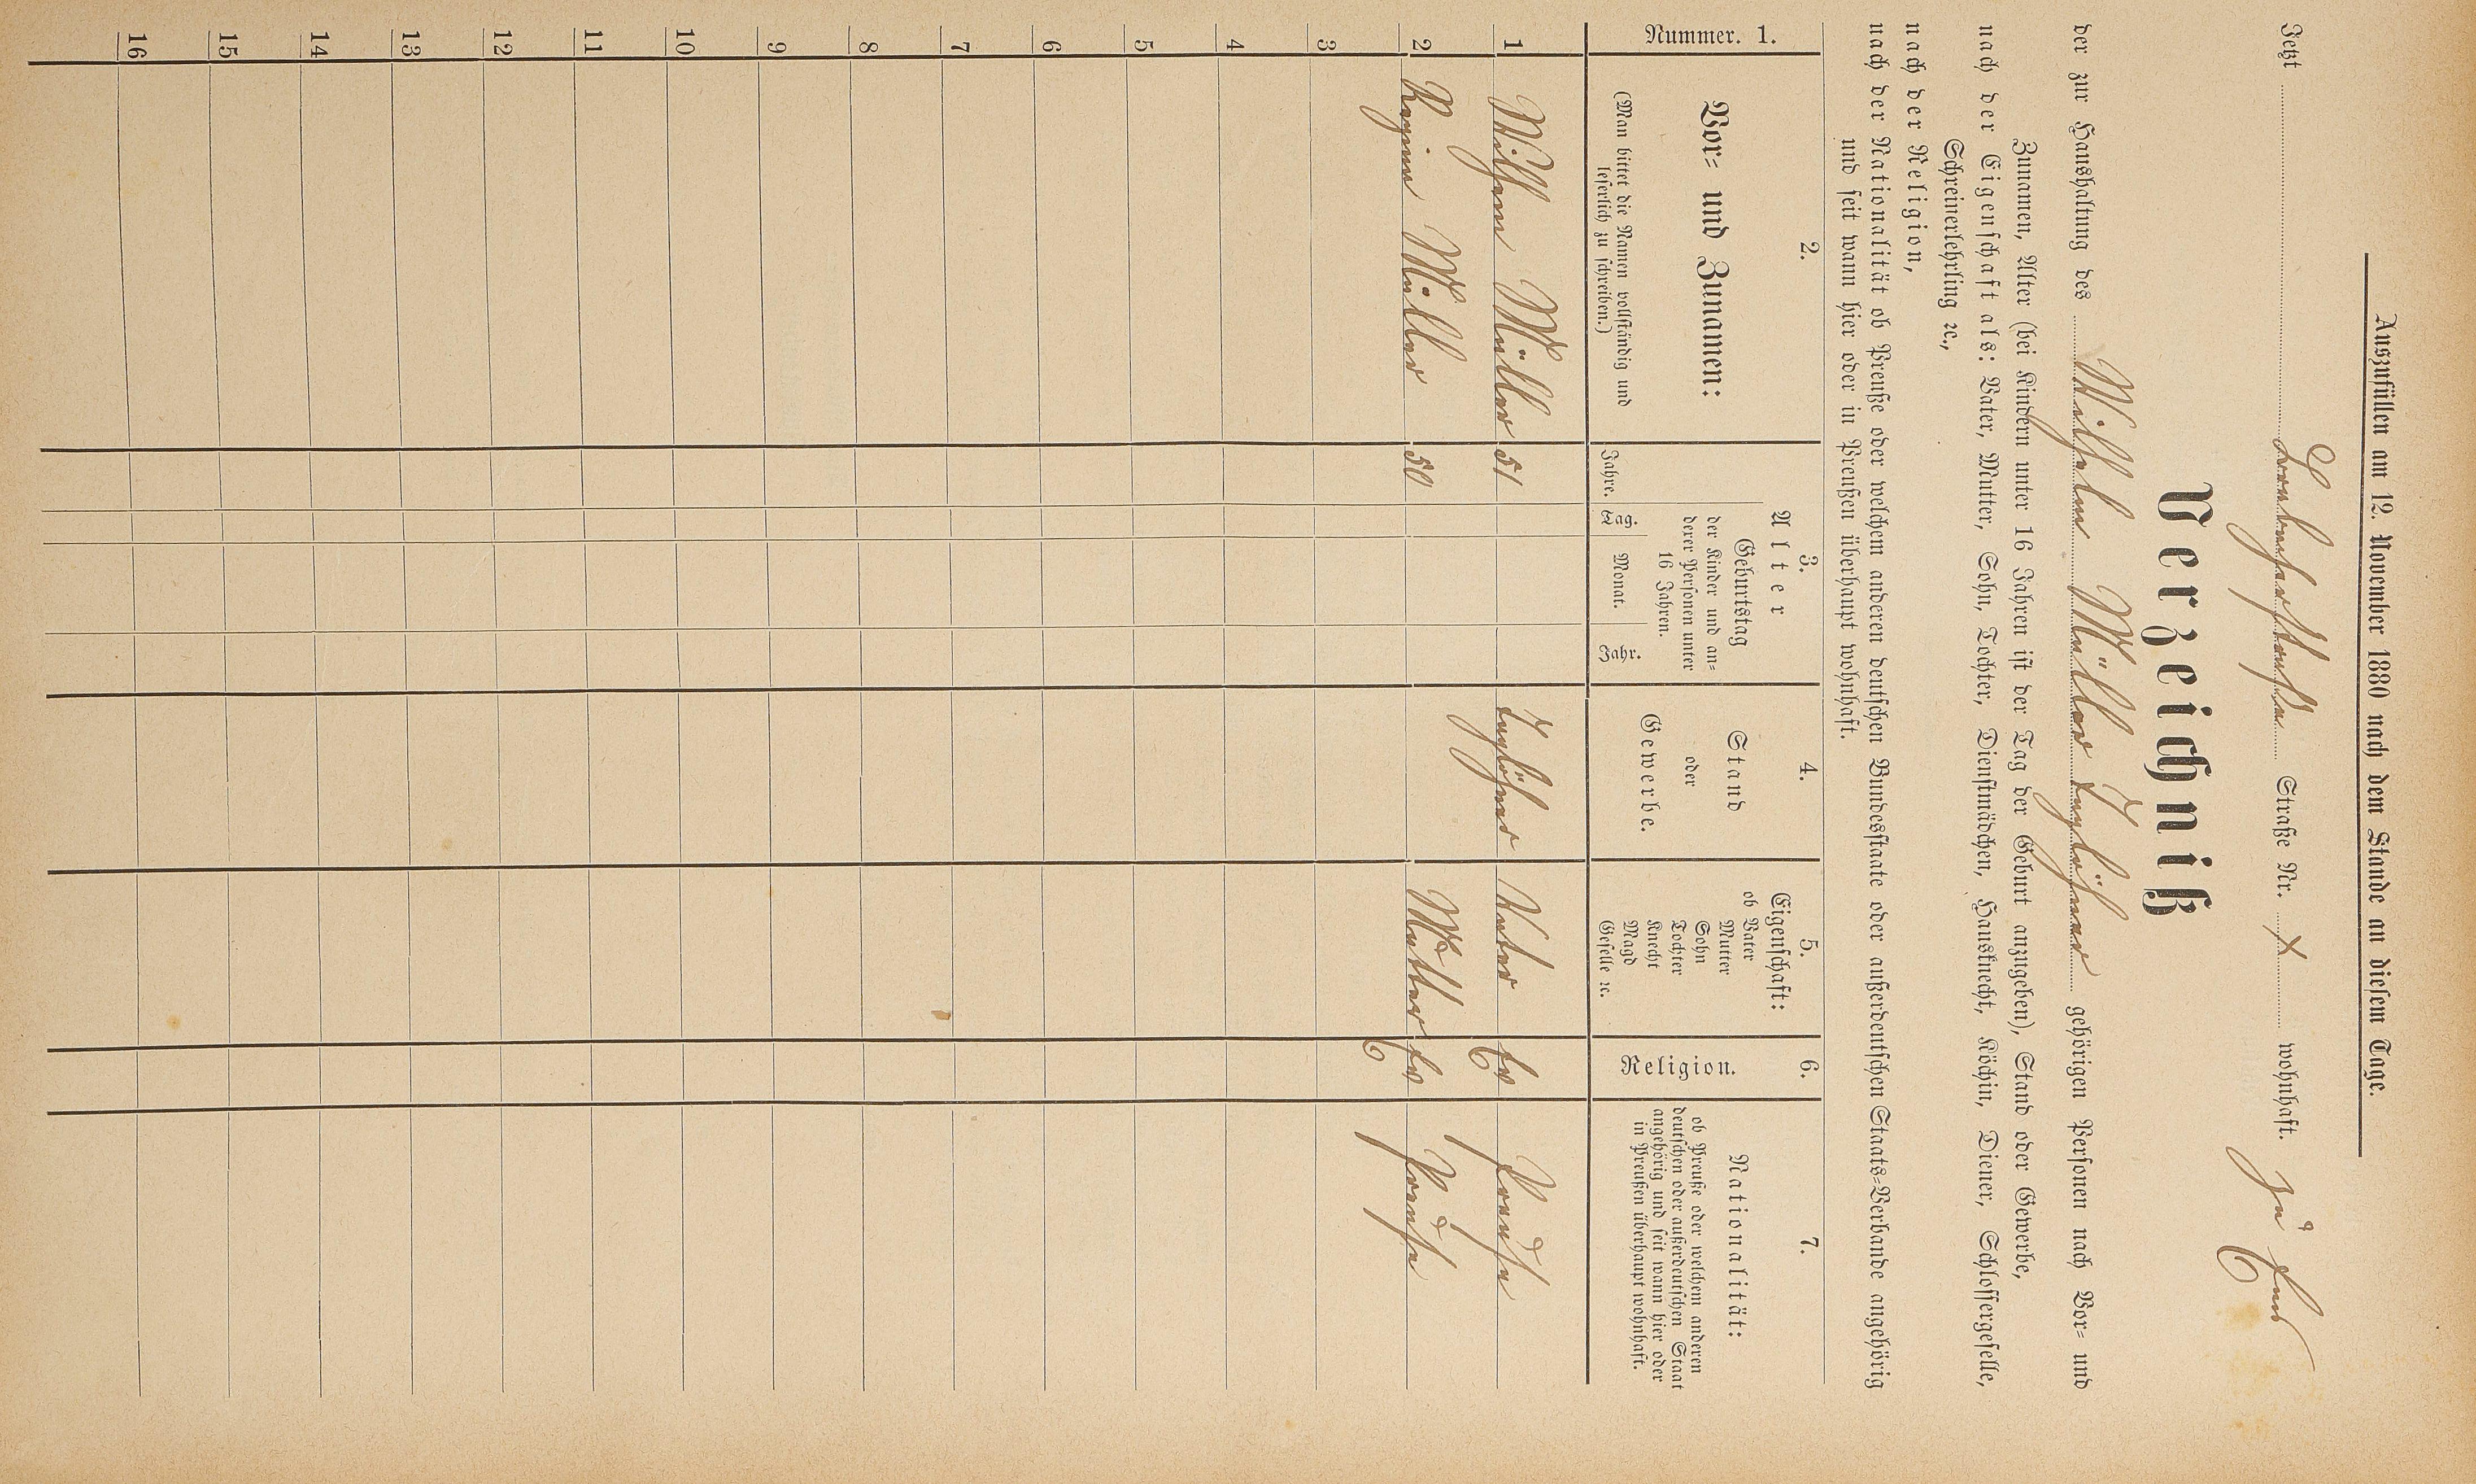 Auszufüllen am 12. November 1880 nach dem Stande an diesem Tage.
Jetzt Straße Nr. X wohnhaft. zu Ems
Verzeichniß
der zur Haushaltung des Wilhelm Müller Taglöhner gehörigen Personen nach Vor= und
Zunamen, Alter (bei Kindern unter 16 Jahren ist der Tag der Geburt anzugeben), Stand oder Gewerbe,
nach der Eigenschaft als: Vater, Mutter, Sohn, Tochter, Dienstmädchen, Hausknecht, Köchin, Diener, Schlossergeselle,
Schreinerlehrling ꝛc.,
nach der Religion,
nach der Nationalität ob Preuße oder welchem anderen deutschen Bundesstaate oder außerdeutschen Staats=Verbande angehörig
und seit wann hier oder in Preußen überhaupt wohnhaft.
Nummer. 1.
2.
Vor= und Zunamen:
(Man bittet die Namen vollständig und
leserlich zu schreiben.)
3.
Alter
Jahre.
Geburtstag
der Kinder und an=
derer Personen unter
16 Jahren.
Tag. Monat. Jahr.
4.
Stand
oder
Gewerbe.
5.
Eigenschaft:
ob Vater
Mutter
Sohn
Tochter
Knecht
Magd
Geselle ꝛc.
6.
Religion.
7.
Nationalität:
ob Preuße oder welchem anderen
deutschen oder außerdeutschen Staat
angehörig und seit wann hier oder
in Preußen überhaupt wohnhaft.
1 Wilhelm Müller 51 Taglöhner Vater Ev Preuße
2 Regine Müller 50 Mutter Ev Preuße
3
4
5
6
7
8
9
10
11
12
13
14
15
16